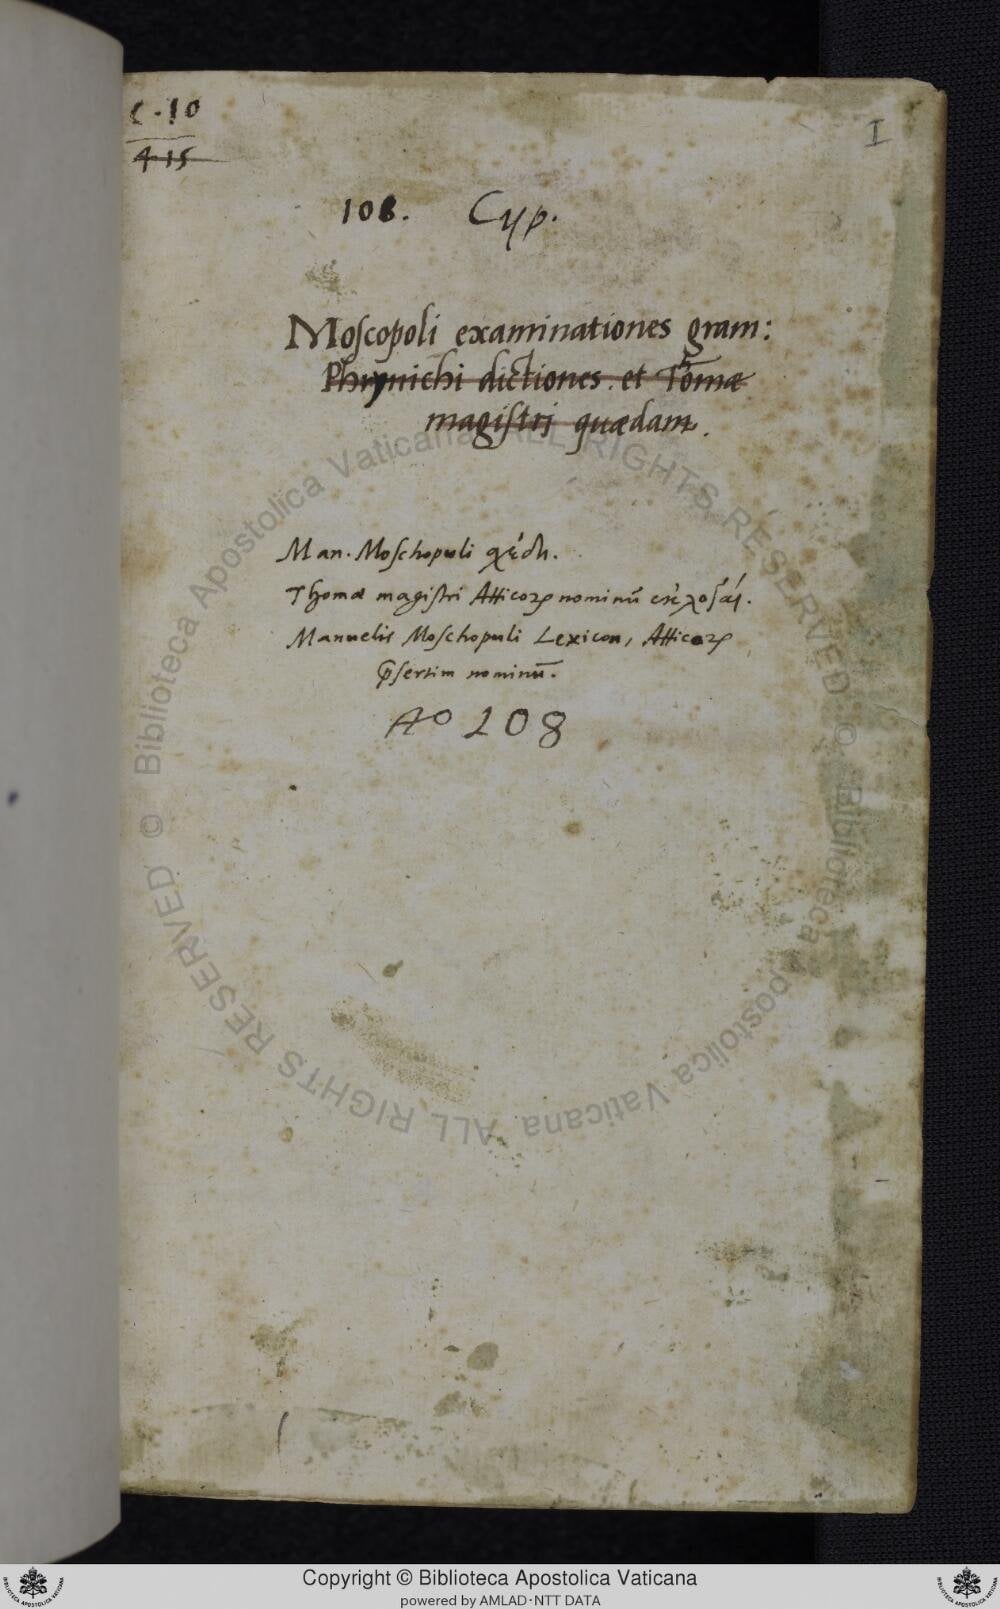 C-10
415
I
108. Cyp.
Moscopoli examinationes gram:
Phrynichi dictiones. et Thomæ
magistri quædam.
Man. Moschopuli σχέδη.
Thomæ magistri Atticoꝝ nominū ἐκλογαί.
Manuelis Moschopuli Lexicon, Atticoꝝ
p̄sertim nominū.
Aº 108
© Biblioteca Apostolica Vaticana ALL RIGHTS RESERVED © Biblioteca Apostolica Vaticana ALL RIGHTS RESERVED
Copyright © Biblioteca Apostolica Vaticana
powered by AMLAD·NTT DATA